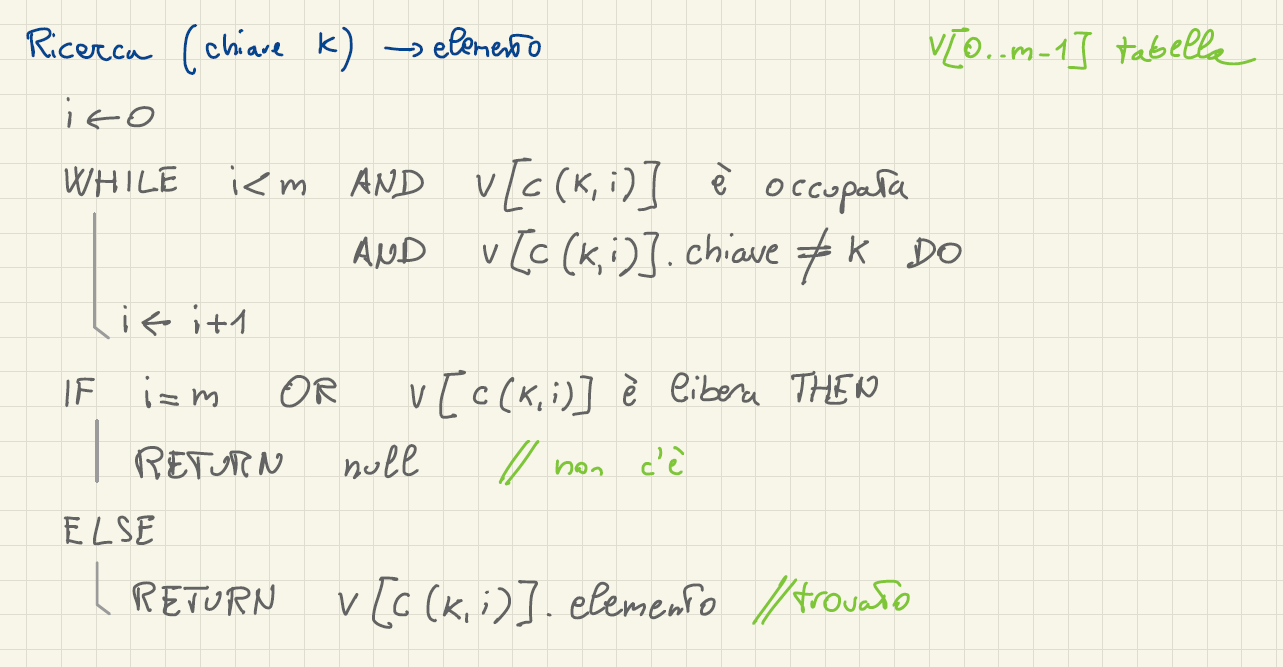 Ricerca (chiave K) → elemento
V[0..m-1] tabella
i ← 0
WHILE i < m AND V[c(K,i)] è occupata
AND V[c(K,i)].chiave ≠ K DO
i ← i+1
IF i = m OR V[c(K,i)] è libera THEN
RETURN null // non c'è
ELSE
RETURN V[c(K,i)].elemento // trovato